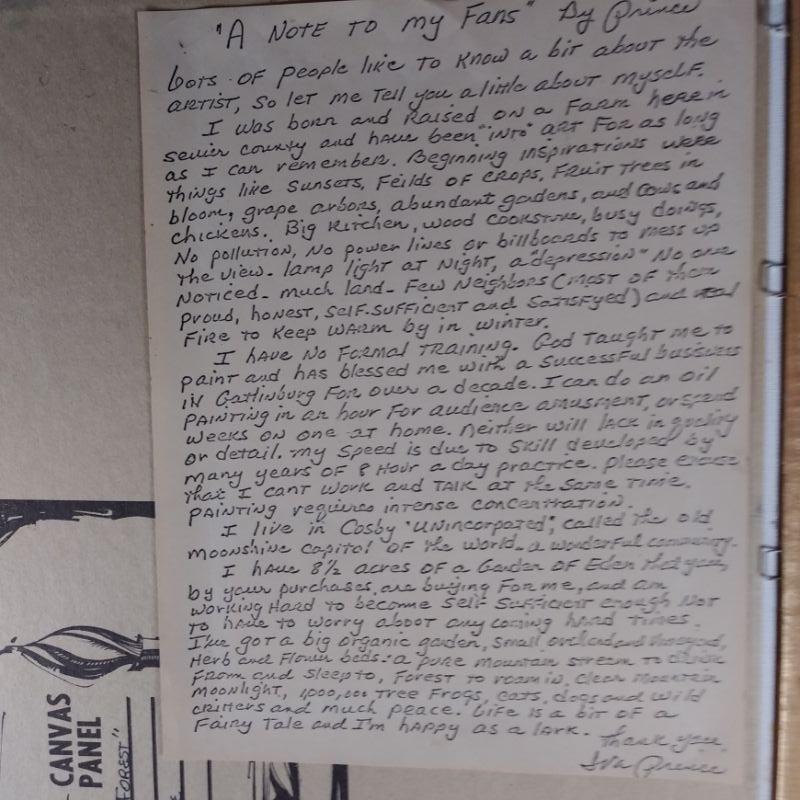 "A NOTE TO my FANS" By Prince
Lots OF people like TO Know a bit about the
ARTIST, SO let me Tell you a little about myself.
I was born and Raised ON a FARM here in
Sevier county and have been "INTO" ART FOR as long
as I can remember. Beginning inspirations were
things like Sunsets, Feilds OF crops, FRUIT TRees in
bloom, grape arbors, abundant gardens, and cows and
chickens. Big Kitchen, wood cookstove, busy doings,
No pollution, No power lines or billboards to mess up
the view. lamp light at Night, a "depression" No one
Noticed - much land - Few Neighbors (most of them
proud, honest, self-sufficient and satisfyed) and real
FIRE to Keep WARM by in winter.
I have No Formal TRaining. God Taught me to
paint and has blessed me with a successful business
in Gatlinburg For over a decade. I can do an oil
PAINTING in an hour For audience amusment, or spend
weeks ON one at home. Neither will lack in quality
or detail. my speed is due to Skill developed by
many years OF 8 Hour a day practice. Please excuse
that I cant work and TALK at the same Time.
PAINTING requires intense concentration.
I live in Cosby "UNincorpated", called the old
moonshine capitol OF the world - a wonderful community.
I have 8½ acres of a Garden OF Eden that you,
by your purchases, are buying For me, and am
working Hard to become Self Sufficient enough Not
to have to worry about any coming hard Times.
I've got a big organic garden, small orchard and vineyard,
Herb and Flower beds: a pure mountain stream to drink
From and sleep to, Forest to roam in, clear mountain
moonlight, 1,000,000 Tree Frogs, cats, dogs and wild
critters and much peace. Life is a bit OF a
Fairy Tale and I'm happy as a lark.
Thank you
Iva Prince
CANVAS
PANEL
FOREST"